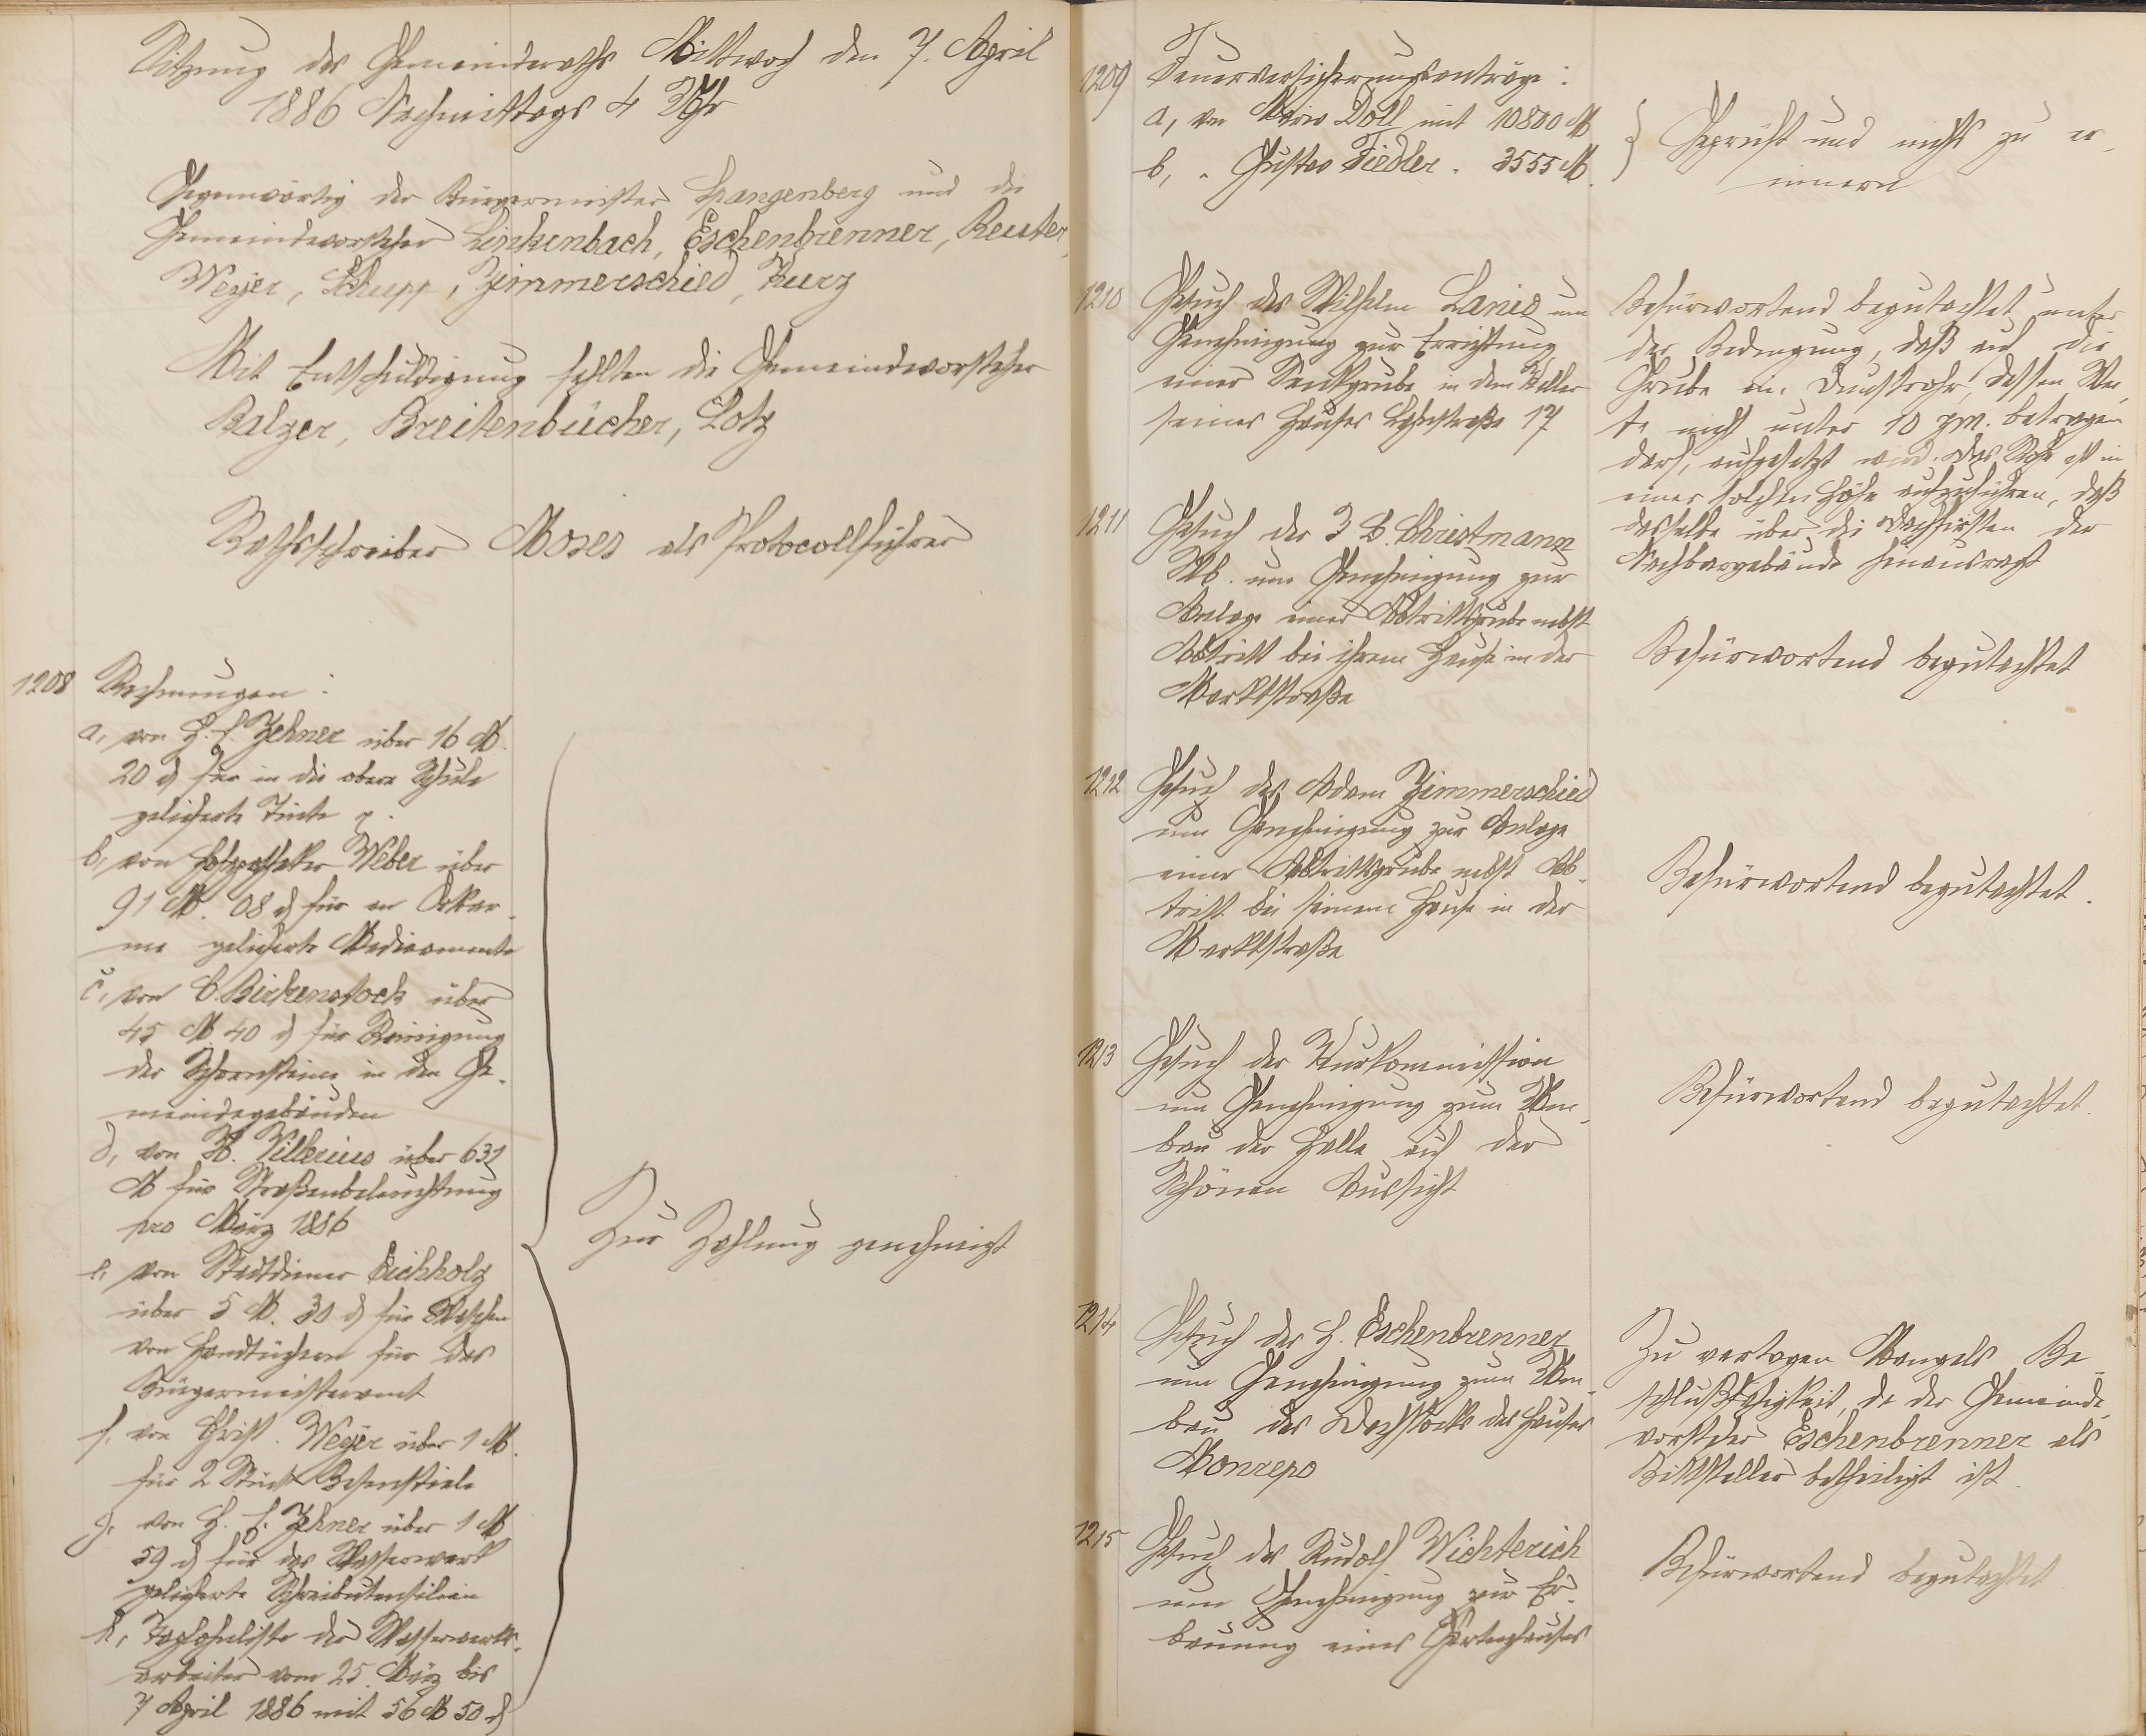 Sitzung des Gemeinderaths Mittwoch den 7. April
1886 Nachmittags 4 Uhr
Gegenwärtig der Bürgermeister Spangenberg und die
Gemeindevorsteher Linkenbach, Eschenbrenner, Reuter,
Weyer, Schupp, Zimmerschied, Kurz
Mit Entschuldigung fehlten die Gemeindevorsteher
Balzer, Breitenbücher, Lotz
Rathsschreiber Moses als Protocollführer
1208 Rechnungen:
a, von H. C. Zehner über 16 M.
20 ₰ für in die obere Schule
gelieferte Tinte
b, von Hofapotheker Weber über
91 M. 08 ₰ für an Ortsar-
me gelieferte Medicamente
c, von C. Birkenstock über
45 M 40 ₰ für Reinigung
der Schornsteine in den Ge-
meindegebäuden
d, von H. Villerius über 632
M für Straßenbeleuchtung
pro März 1886
e, von Stadtdiener Eichholz
über 5 M. 30 ₰ für Waschen
von Handtüchern für das
Bürgermeisteramt
f, von Christ. Weyer über 1 M.
für 2 Stück Besenstiele
g, von H. C. Zehner über 1 M
59 ₰ für das Wasserwerk
gelieferte Schreibutensilien
h, Taglohnliste der Wasserwerks-
arbeiter vom 25. März bis
7 April 1886 mit 56 M 50 ₰
Zur Zahlung genehmigt
1209 Feuerversicherungsanträge:
a, von Döll mit 10800 M
b, " Gustav Fiedler " 3555 M.
Geprüft und nichts zu er-
innern
1210 Gesuch des Wilhelm Lanio um
Genehmigung zur Errichtung
einer Senkgrube in dem Keller
seines Hauses Lahnstraße 17
Befürwortend begutachtet unter
der Bedingung, daß auf die
Grube ein Dunstrohr, dessen Wei-
te nicht unter 10 zm. betragen
darf, aufgesetzt wird. Das Rohr ist in
einer solchen Höhe aufzuführen, daß
dasselbe über die Dachfirsten der
Nachbargebäude hinausragt
1211 Gesuch der J. B. Christmann
Wb. um Genehmigung zur
Anlage einer Abtrittgrube nebst
Abtritt bei ihrem Hause in der
Marktstraße
Befürwortend begutachtet
1212 Gesuch des Adam Zimmerschied
um Genehmigung zur Anlage
einer Abtrittsgrube nebst Ab-
tritt bei seinem Hause in der
Marktstraße
Befürwortend begutachtet.
1213 Gesuch der Kurkommission
um Genehmigung zum Um-
bau der Halle auf der
Schönen Aussicht
Befürwortend begutachtet.
1214 Gesuch des H. Eschenbrenner
um Genehmigung zum Um-
bau des Dachstocks des Hauses
Monrepo
Zu vertagen Mangels Be-
schlußfähigkeit, da der Gemeinde-
vorsteher Eschenbrenner als
Bittsteller betheiligt ist.
1215 Gesuch des Rudolf Wichterich
um Genehmigung zur Er-
bauung eines Gartenhauses
Befürwortend begutachtet